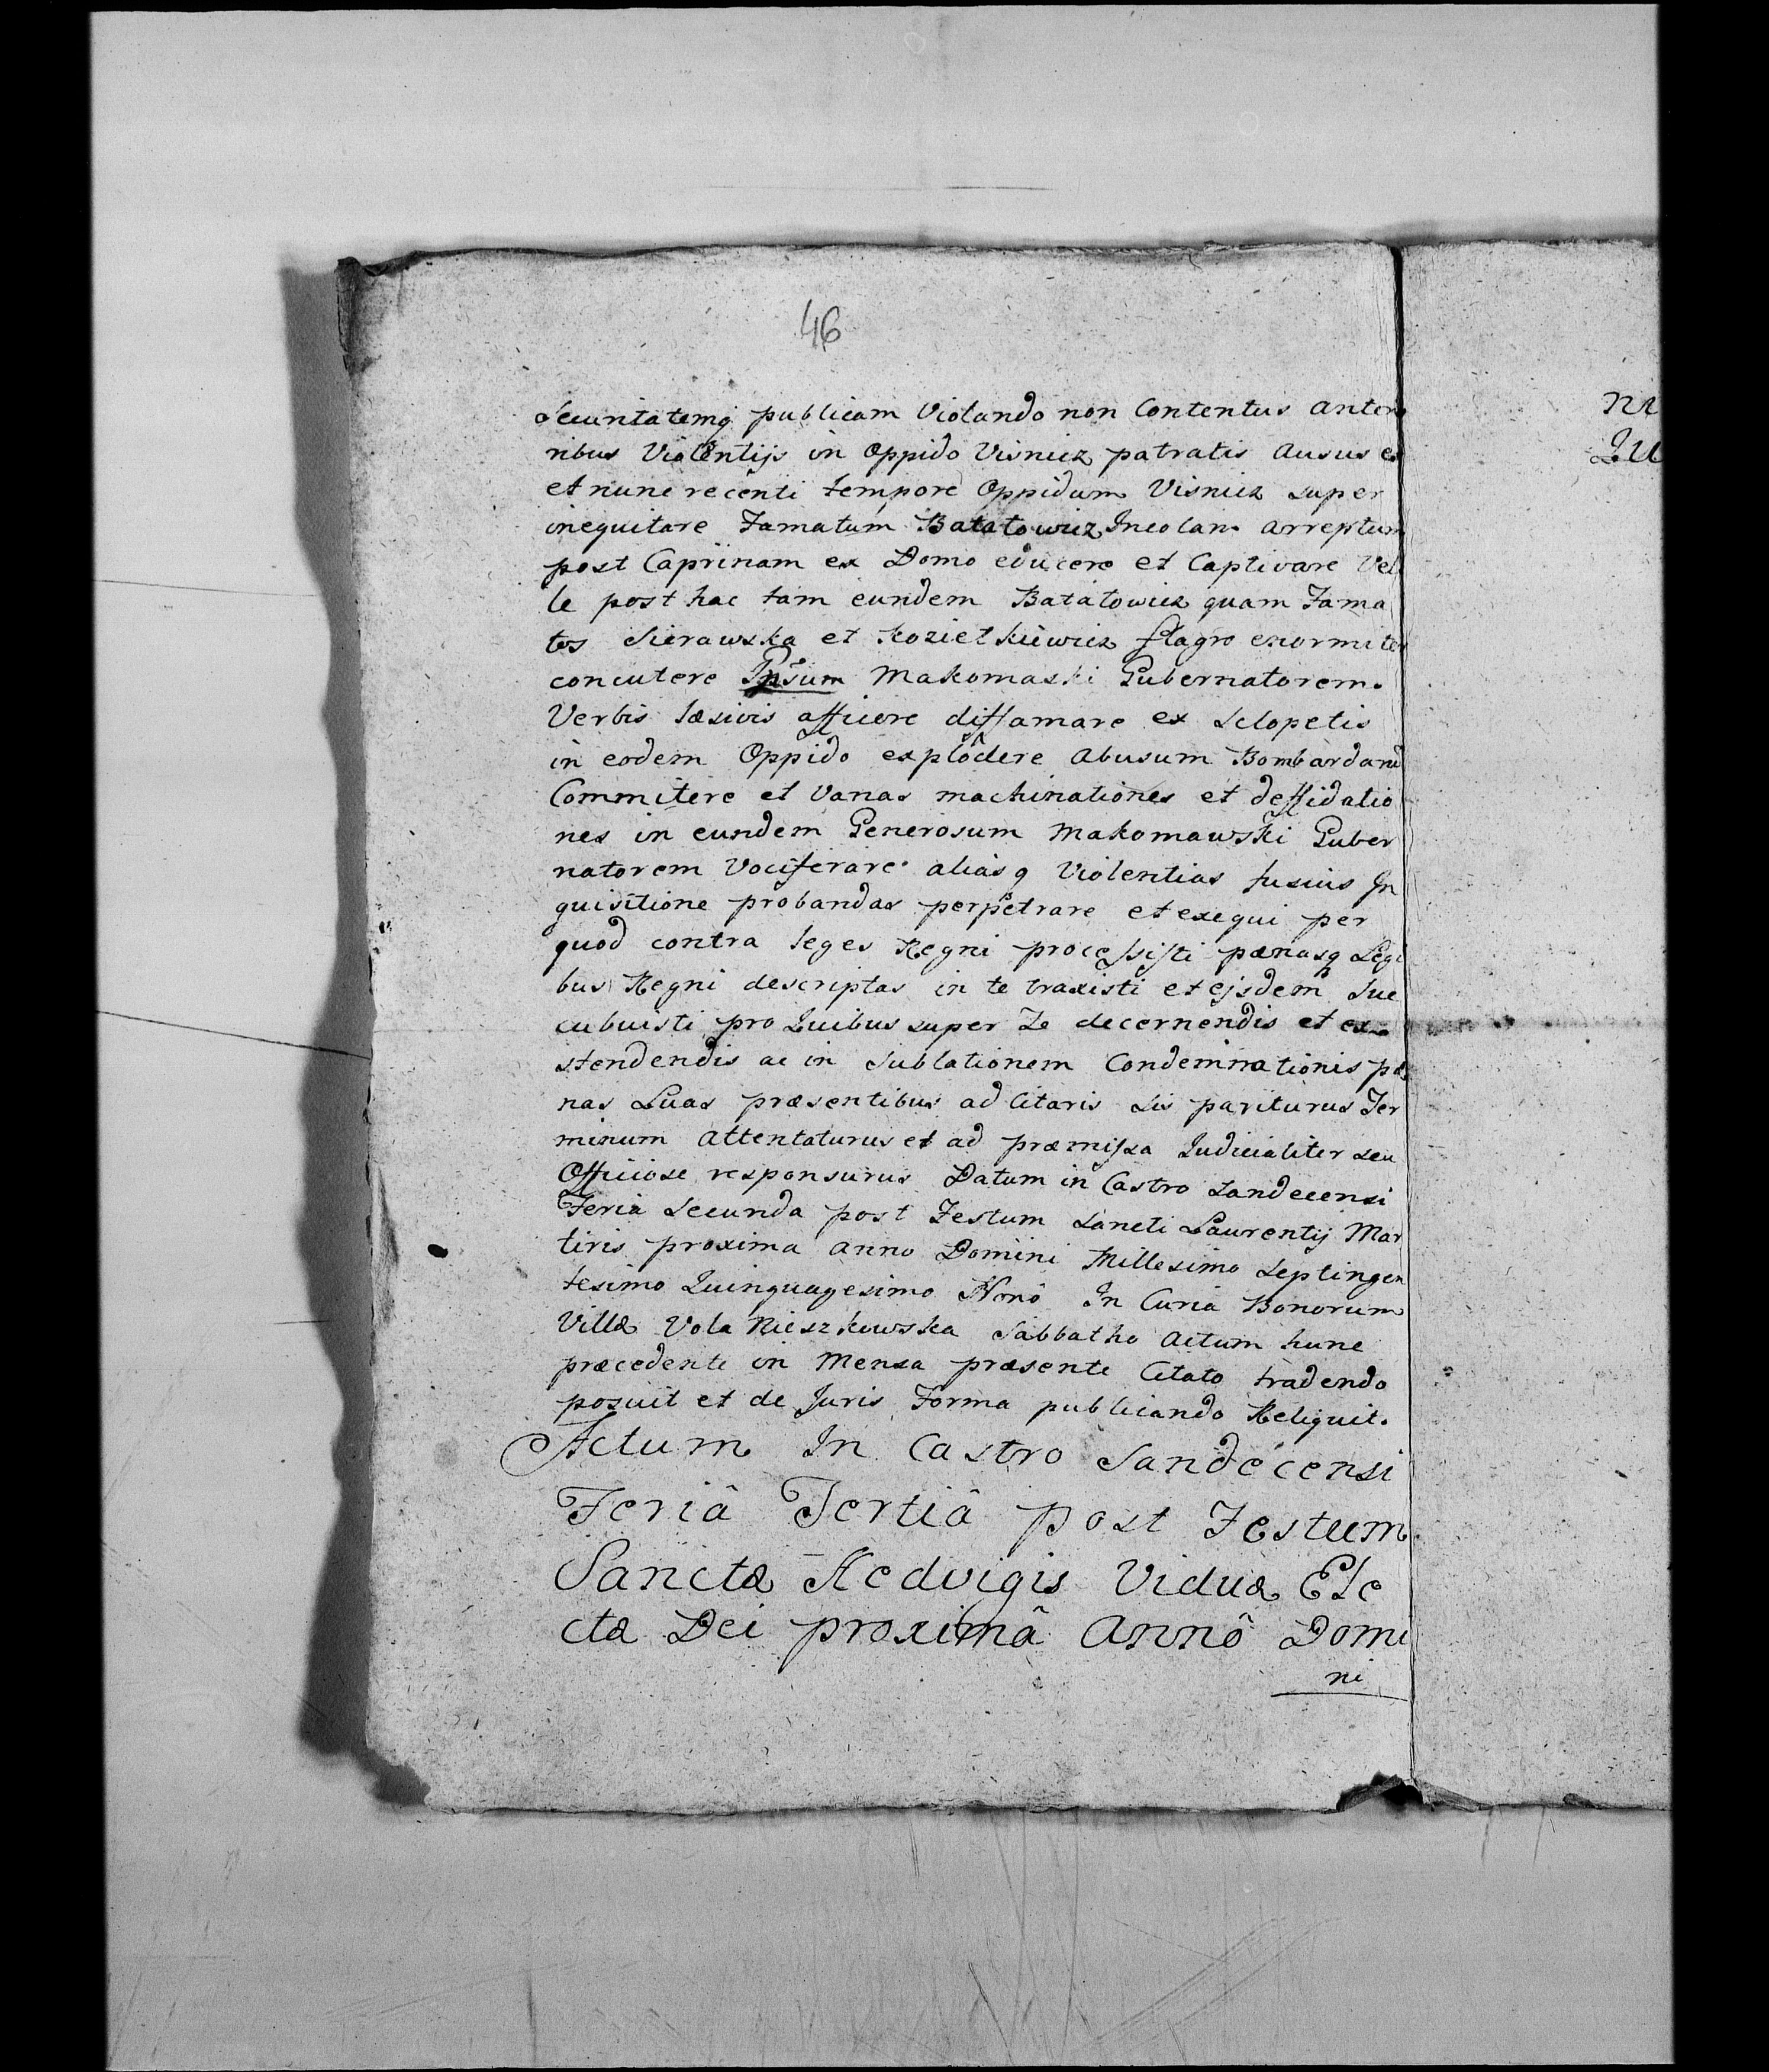 46
Securitatemq publicam Violando non Contentus anterio
ribus Violentijs in Oppido Visnicz patratis Ausus es
et nunc recenti tempore Oppidum Visnicz super
inequitare Famatum Batatowicz Incolam arreptum
post Caprinam ex Domo educere et Captivare Vel
le post hac tam eundem Batatowicz quam Fama
tos Sierawska et Kozielkiewicz flagro enormiter
concutere Ipsum Makomaski Gubernatorem.
Verbis læsivis afficere diffamare ex Sclopetis
in eodem Oppido explodere Abusum Bombardand
Commitere et Varias machinationes et deffidatio
nes in eundem Generosum Makomawski Guber
natorem Vociferare aliasq Violentias fusius In
quisitione probandas perpetrare et exequi per
quod contra leges Regni processisti pænasq Legi
bus Regni descriptas in te traxisti et ejsdem suc
cubuisti pro Quibus super Te decernendis et ex
stendendis ac in Sublationem Condemnationis pæ
nas Luas præsentibus ad Citaris Sis pariturus Ter
minum attentaturus et ad præmissa Judicialiter seu
Officiose responsurus Datum in Castro Sandecensi
Feria Secunda post Festum Sancti Laurentij Mar
tiris proxima anno Domini Millesimo Septingen
tesimo Quinquagesimo Nonô In Curia Bonorum
Villæ Vola Nieszkowska Sabbatho Actum hunc
præcedente in Mensa præsente Citato tradendo
posuit et de Juris Forma publicando Reliquit.
Actum In Castro Sandecensi
Feriâ Tertiâ post Festum
Sanctæ Hedvigis Viduæ Ele
ctæ Dei proximâ Annô Domi
ni